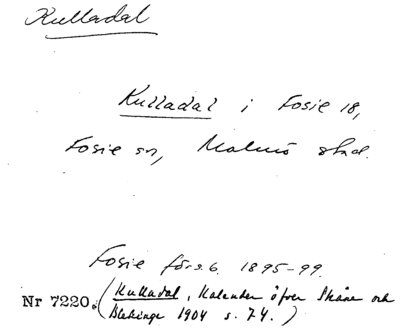 Kulladal
Kulladal i Fosie 18,
Fosie sn, Malmö stad.
Fosie förs. 6. 1895-99.
(Kulladal, Kalender öfver Skåne och
Nr 7220. Blekinge 1904 s. 74.)